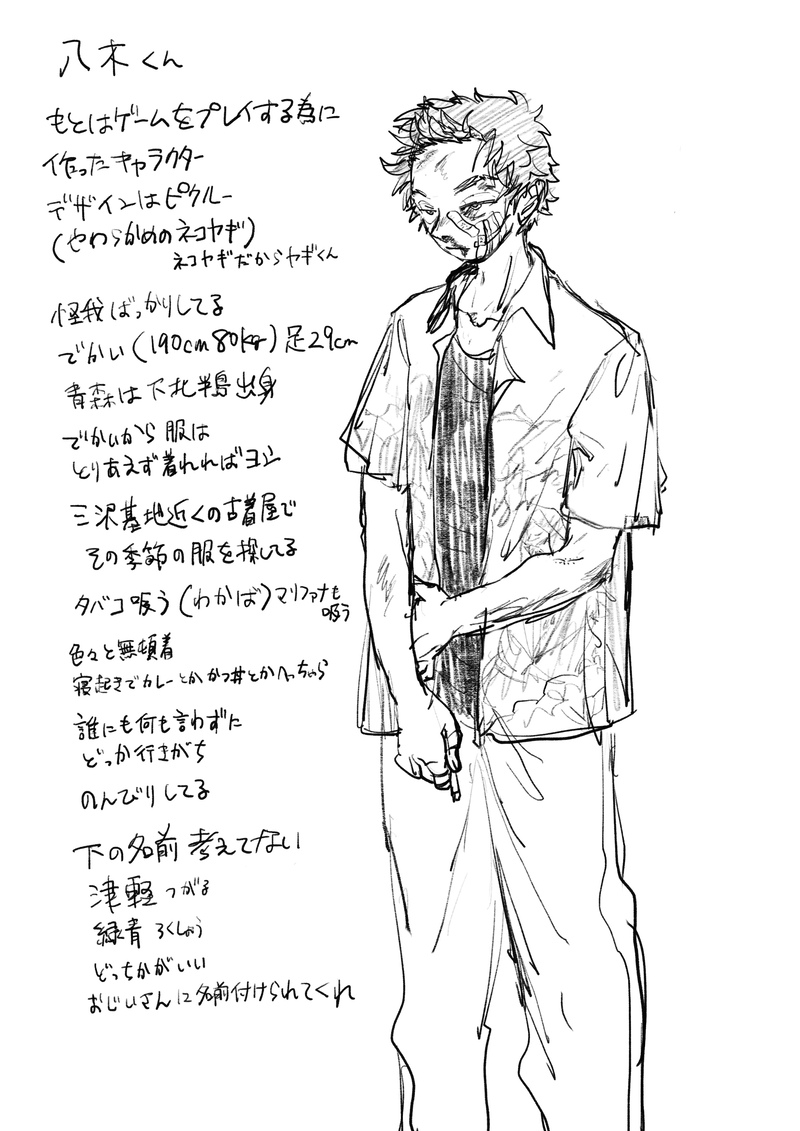 八木くん
もとはゲームをプレイする為に
作ったキャラクター
デザインはピクルー
(やわらかめのネコヤギ)
ネコヤギだからヤギくん
怪我ばっかりしてる
でかい(190cm80kg)足29cm
青森は下北半島出身
でかいから服は
とりあえず着れればヨシ
三沢基地近くの古着屋で
その季節の服を探してる
タバコ吸う(わかば)マリファナも
吸う
色々と無頓着
寝起きでカレーとかカツ丼とかへっちゃら
誰にも何も言わずに
どっか行きがち
のんびりしてる
下の名前考えてない
津軽 つがる
緑青 ろくしょう
どっちかがいい
おじいさんに名前付けられてくれ